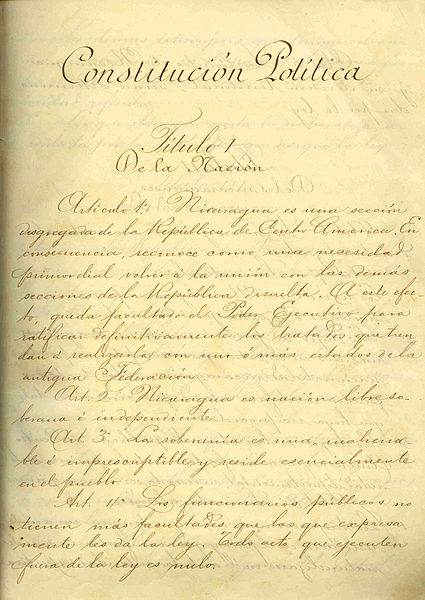 Constitución Política
Título 1
De la Nación
Artículo 1º Nicaragua es una sección
disgregada de la República de Centro América. En
consecuencia, reconoce como una necesidad
primordial volver á la unión con las demás
secciones de la República disuelta. A este efec-
to, queda facultado el Poder Ejecutivo para
ratificar definitivamente los tratados que tien-
dan á realizarla con uno ó más estados de la
antigua Federación
Art. 2º Nicaragua es nación libre, so-
berana é independiente
Art. 3º La soberanía es una, inaliena-
ble é imprescriptible y reside esencialmente
en el pueblo
Art. 4º Los funcionarios públicos no
tienen más facultades, que las que expresa-
mente les da la ley. Todo acto que ejecuten
fuera de la ley es nulo.